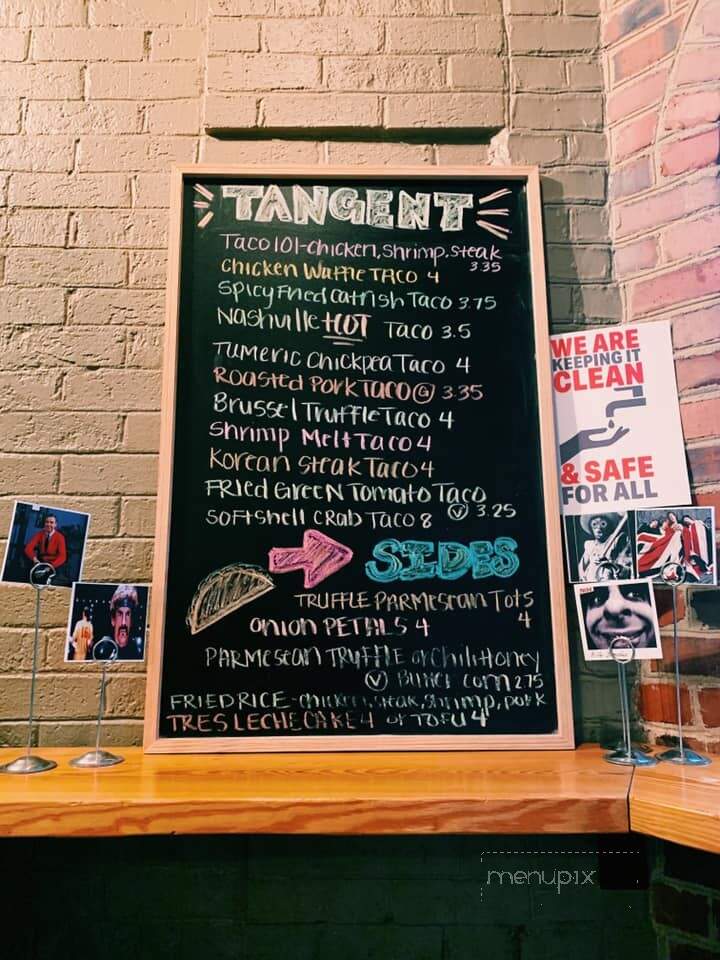 TANGENT
Taco 101-chicken, shrimp, steak
3.35
Chicken Waffle Taco 4
Spicy Fried Catfish Taco 3.75
Nashville HOT Taco 3.5
Tumeric Chickpea Taco 4
Roasted Pork Taco G 3.35
Brussel Truffle Taco 4
Shrimp Melt Taco 4
Korean Steak Taco 4
Fried Green Tomato Taco
V 3.25
Softshell Crab Taco 8
SIDES
Truffle Parmesean Tots
4
Onion Petals 4
Parmesean Truffle or Chili Honey
V Butter Corn 2.75
Fried Rice - chicken, steak, shrimp, pork
or Tofu 4
Tres Leche Cake 4
WE ARE
KEEPING IT
CLEAN
& SAFE
FOR ALL
menupix